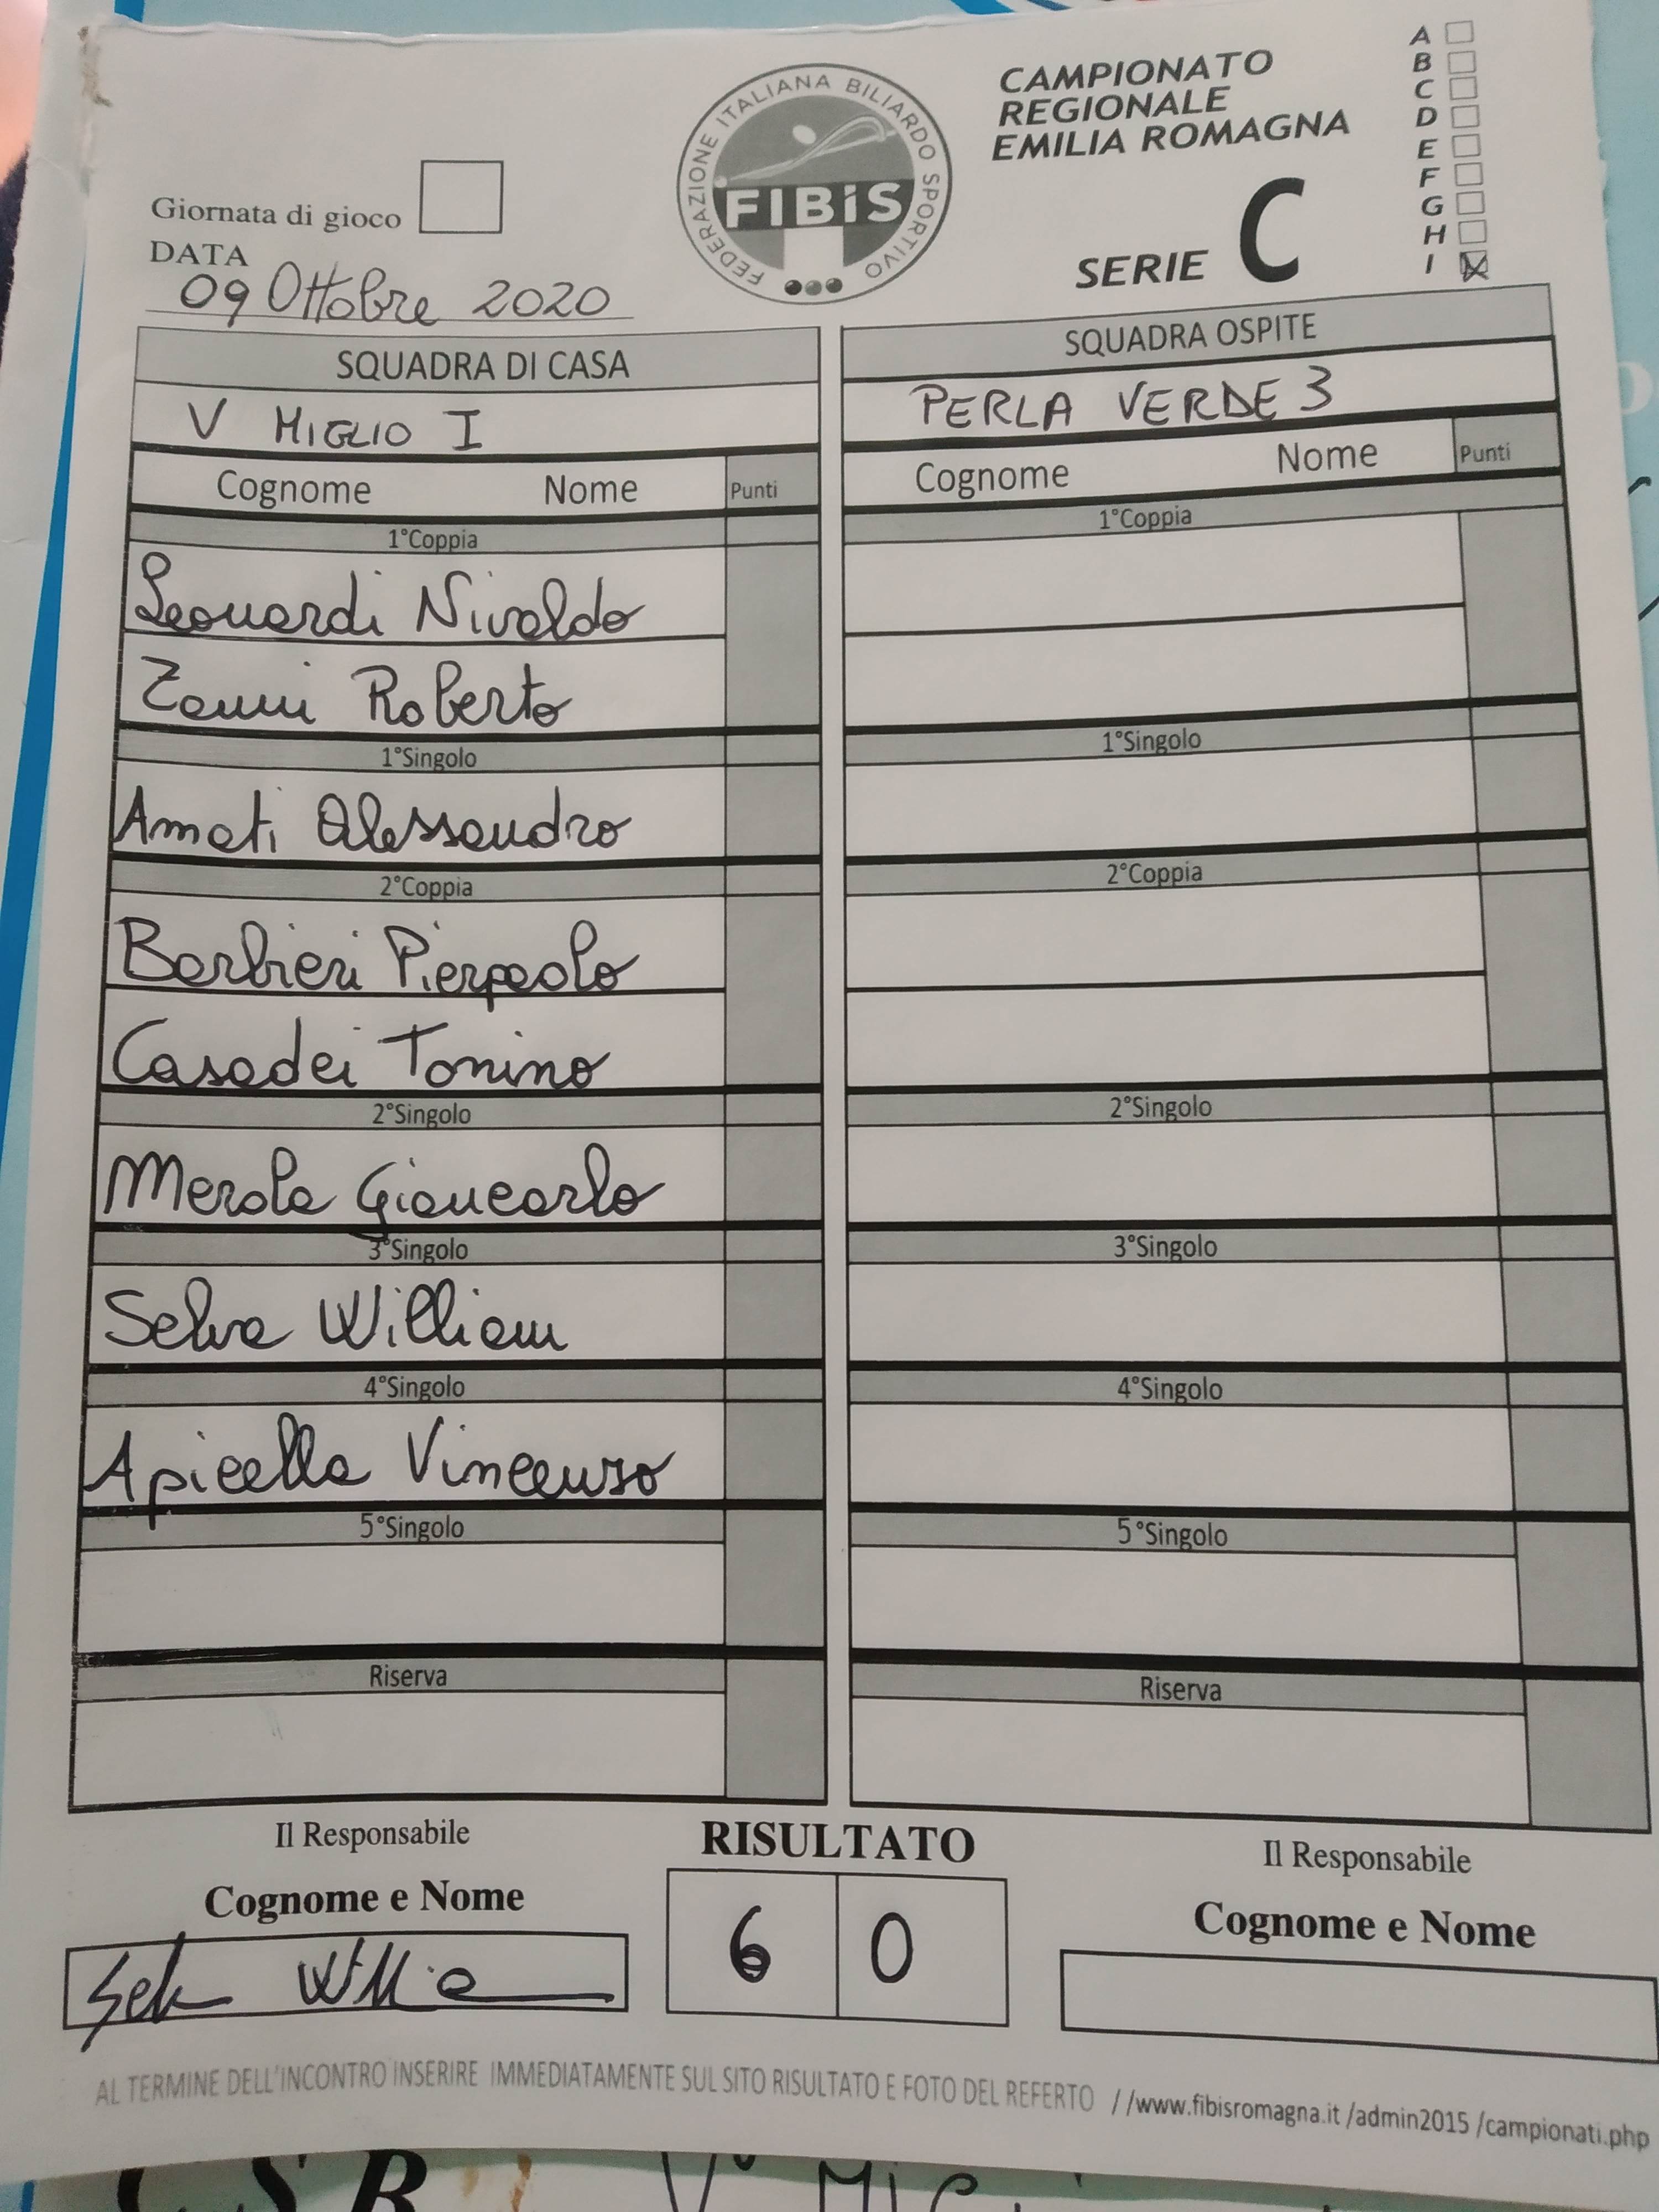 CAMPIONATO
REGIONALE
EMILIA ROMAGNA
SERIE C
A
B
C
D
E
F
G
H
I
FEDERAZIONE ITALIANA BILIARDO SPORTIVO
FIBiS
Giornata di gioco
DATA
09 Ottobre 2020
SQUADRA DI CASA
V MIGLIO I
Cognome Nome Punti
1°Coppia
Leonardi Nivaldo
Zanni Roberto
1°Singolo
Amati Alessandro
2°Coppia
Barbieri Pierpaolo
Casadei Tonino
2°Singolo
Merola Giancarlo
3°Singolo
Selva William
4°Singolo
Apicella Vincenzo
5°Singolo
Riserva
SQUADRA OSPITE
PERLA VERDE 3
Cognome Nome Punti
1°Coppia
1°Singolo
2°Coppia
2°Singolo
3°Singolo
4°Singolo
5°Singolo
Riserva
Il Responsabile
Cognome e Nome
Selva Willia
RISULTATO
6 0
Il Responsabile
Cognome e Nome
AL TERMINE DELL'INCONTRO INSERIRE IMMEDIATAMENTE SUL SITO RISULTATO E FOTO DEL REFERTO //www.fibisromagna.it /admin2015 /campionati.php